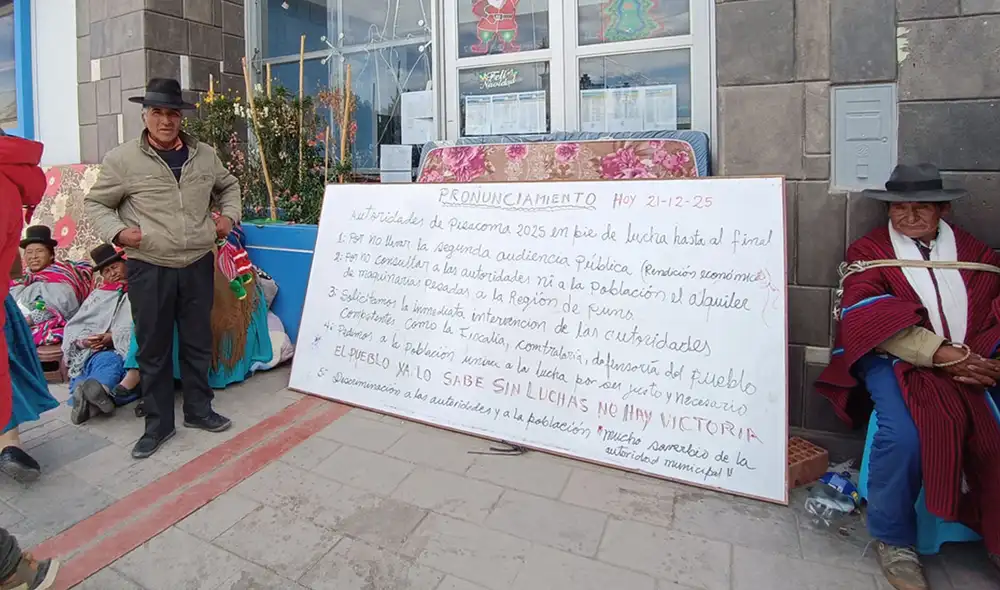 Feliz
Navidad
PROÑUNCIAMIENTO HOY 21-12-25
Autoridades de Pisacoma 2025 en pie de lucha hasta al final
1. Por no llevar la segunda audiencia Pública (Rendición económica)
2. Por no consultar a las autoridades ni a la Población el alquiler
de maquinarias pesadas a la Región de Puno.
3. Solicitamos la inmediata intervención de las autoridades
competentes como la Fiscalía, contraloría, defensoría del Pueblo
4. Pedimos a la Población unirse a la lucha por ser justo y necesario
EL PUEBLO YA LO SABE SIN LUCHAS NO HAY VICTORIA
5. Discriminación a las autoridades y a la población "mucho soverbio de la
autoridad municipal"